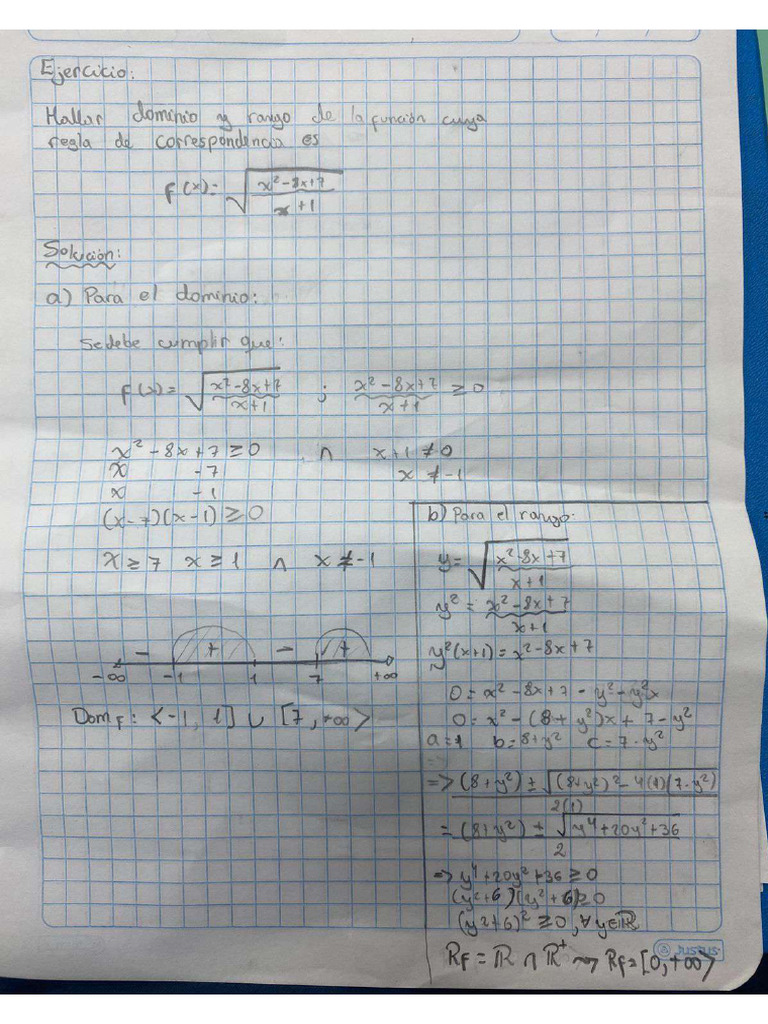 Ejercicio:
Hallar dominio y rango de la función cuya
regla de correspondencia es
f(x)= √((x²-8x+7)/(x+1))
Solución:
a) Para el dominio:
Se debe cumplir que:
f(x)= √((x²-8x+7)/(x+1)) ; (x²-8x+7)/(x+1) ≥ 0
x²-8x+7≥0 ∩ x+1≠0
x -7 x≠-1
x -1
(x-7)(x-1)≥0
x≥7 x≥1 ∩ x≠-1
- + - +
-∞ -1 1 7 +∞
Domf: <-1, 1] ∪ [7, +∞>
b) Para el rango:
y= √((x²-8x+7)/(x+1))
y²= (x²-8x+7)/(x+1)
y²(x+1)=x²-8x+7
0=x²-8x+7-y²-y²x
0=x²-(8+y²)x+7-y²
a=1 b=8+y² c=7-y²
=> ((8+y²)±√((8+y²)²-4(1)(7-y²)))/(2(1))
= ((8+y²)±√(y⁴+20y²+36))/2
=> y⁴+20y²+36≥0
(y²+6)(y²+6)≥0
(y²+6)²≥0, ∀y∈ℝ
Rf=ℝ∩ℝ⁺ ⇝ Rf=[0,+∞>
JUSTUS